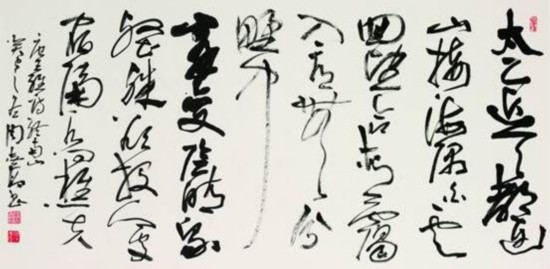 太乙近天都連
山接海隅白雲
回望合青靄
入看無分
野中
峰變陰晴衆
壑殊欲投人處
宿隔水問樵夫
唐王維詩終南山
癸巳之